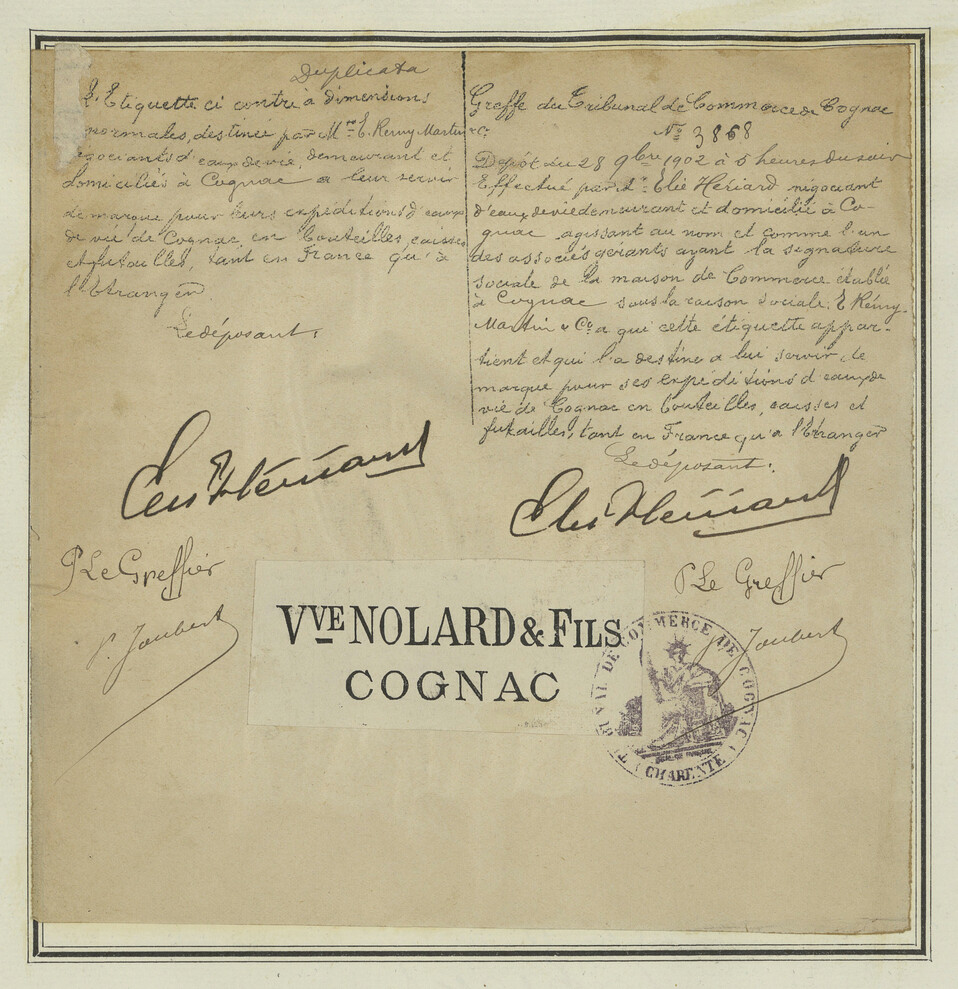 Duplicata
L'Etiquette ci contre à dimensions
normales, destinée par Mrs E. Remy Martin & Co
négociants d'eaux de vie, demeurant et
domiciliés à Cognac a leur servir
de marque pour leurs expéditions d'eaux
de vie de Cognac en bouteilles, caisses
et futailles, tant en France qu'à
l'Etranger
Le déposant.
Elie Hériard
P Le Greffier
P. Joubert
Greffe du Tribunal de Commerce de Cognac
No 3868
Dépôt du 28 9bre 1902 à 5 heures du soir
Effectué par Mr. Elie Hériard négociant
d'eaux de vie demeurant et domicilié à Co-
gnac agissant au nom et comme l'un
des associés gérants ayant la signature
sociale de la maison de Commerce établie
à Cognac sous la raison sociale. E Rémy-
Martin & Co a qui cette étiquette appar-
tient et qui l'a destine a lui servir de
marque pour ses expéditions d'eaux de
vie de Cognac en bouteilles, caisses et
futailles, tant en France qu'a l'Etranger
Le déposant.
Elie Hériard
P Le Greffier
P. Joubert
VVE NOLARD & FILS
COGNAC
TRIBUNAL DE COMMERCE DE COGNAC
(CHARENTE)